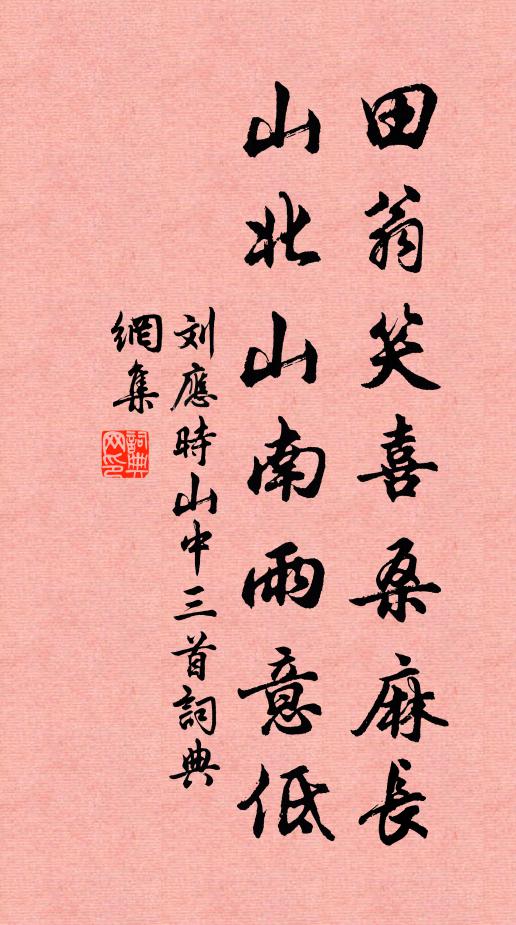 田翁笑喜桑麻長
山北山南雨意低
刘應時山中三首詞典
網集
詞典
网印